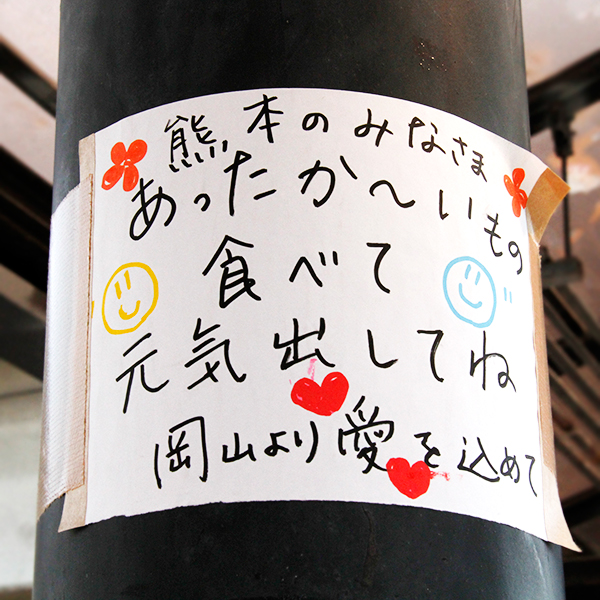 熊本のみなさま
あったか〜いもの
食べて
元気出してね
岡山より愛を込めて